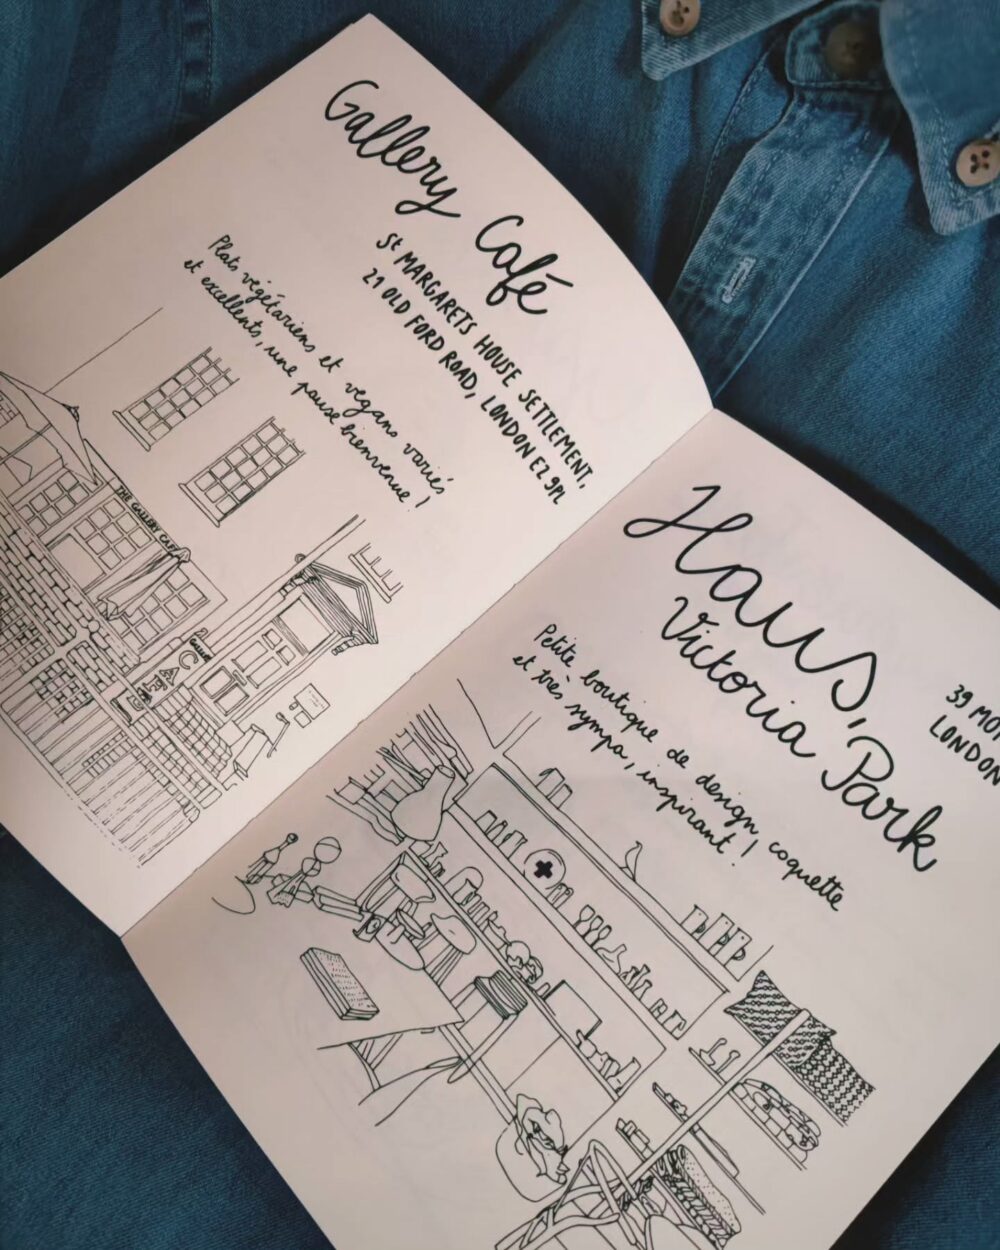 Gallery Café
St MARGARETS HOUSE SETTLEMENT,
21 OLD FORD ROAD, LONDON E2 9PL
Plats végétariens et vegans variés
et excellents, une pause bienvenue !
THE GALLERY CAFE
GALLERY
CAFE
Haus,
Victoria Park
39 MO
LONDON
Petite boutique de design, coquette
et très sympa, inspirant !